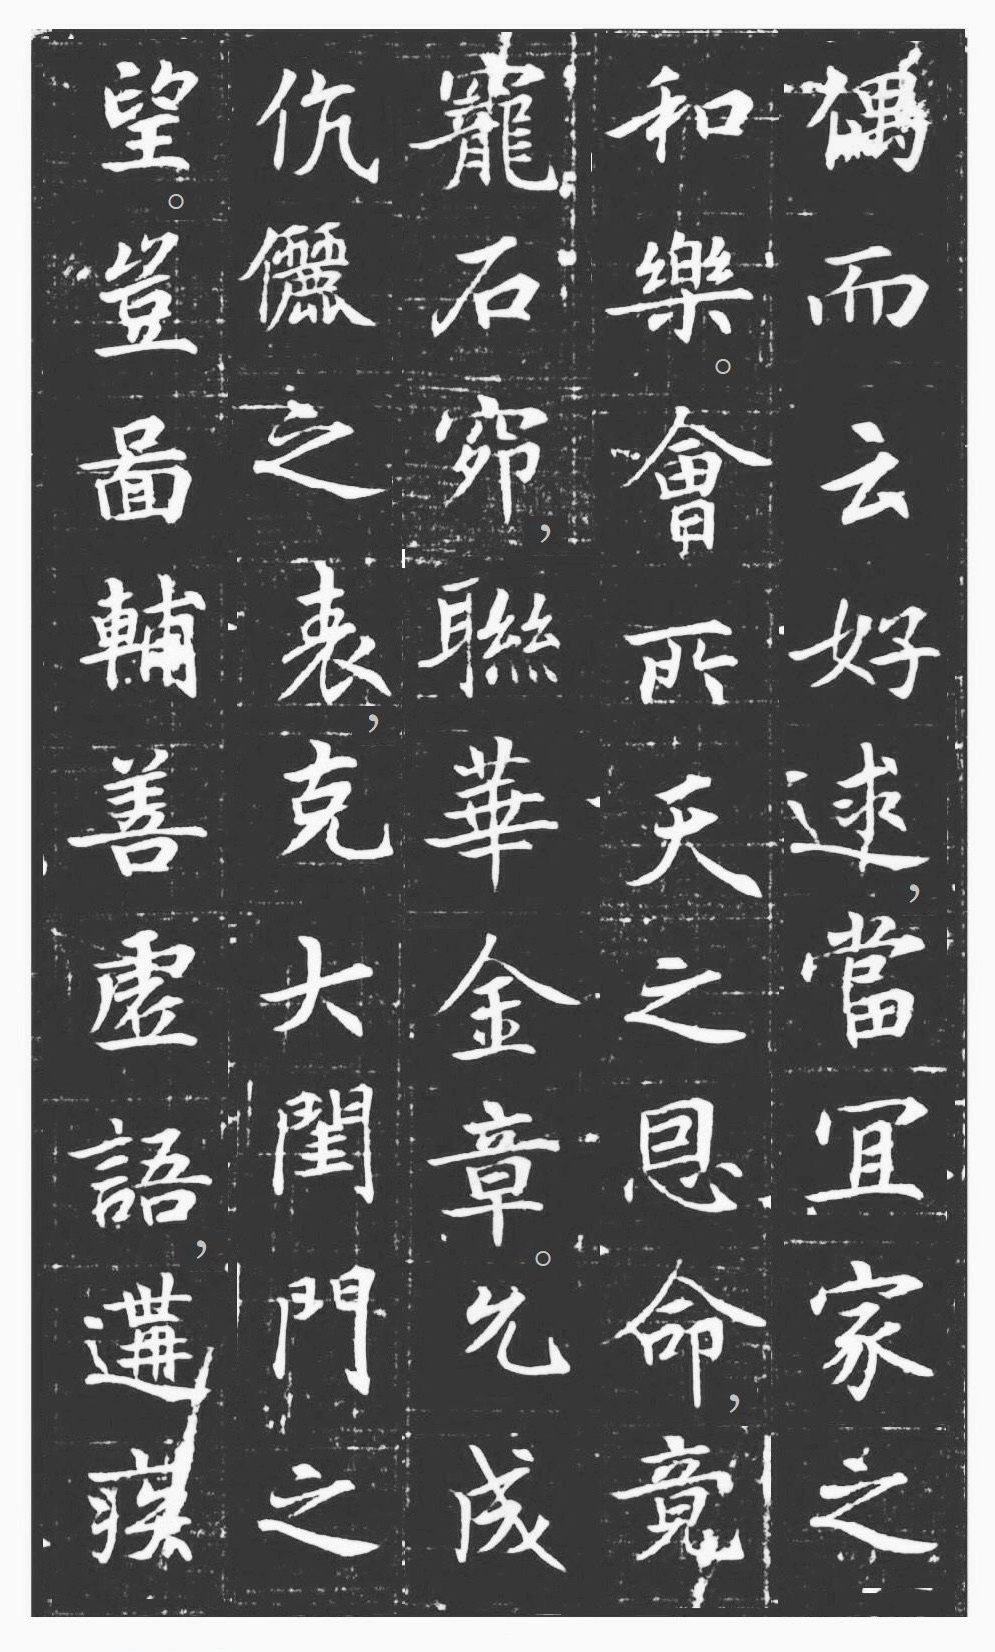 耦而云好逑，當宜家之
和樂。會所天之恩命，竟
寵石窌，聯華金章。允成
伉儷之表，克大閨門之
望。豈啚輔善虛語，遘疾